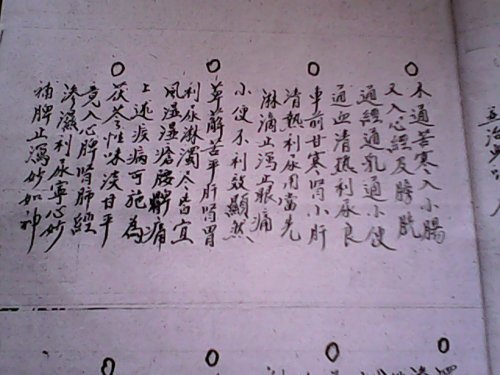 木通苦寒入小腸
又入心經及膀胱
通經通乳通小便
通血清熱利尿良
車前甘寒腎小肝
清熱利尿用當先
淋滴止瀉止眼痛
小便不利效顯然
萆薢苦平肝腎胃
利尿淋濁冬皆宜
風濕濕瘡腰痛
上述疾病可施為
茯苓性味淡甘平
竟入心脾腎肺經
滲濕利尿寧心妙
補脾止瀉妙如神